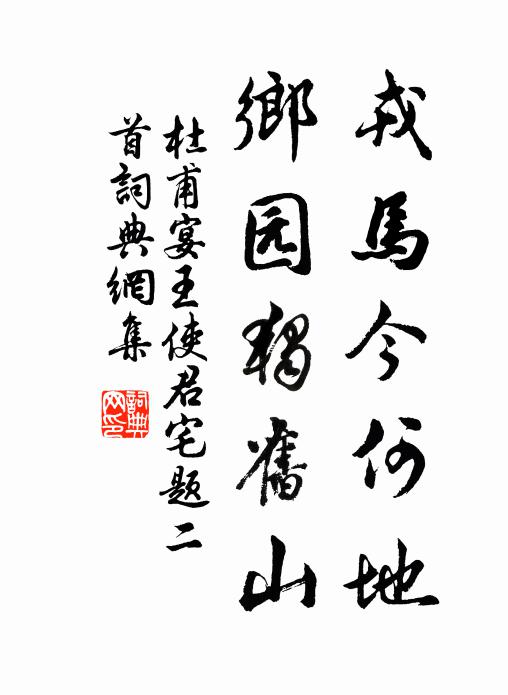 戎馬今何地
鄉园獨舊山
杜甫宴王使君宅題二
首詞典網集
詞典
网印